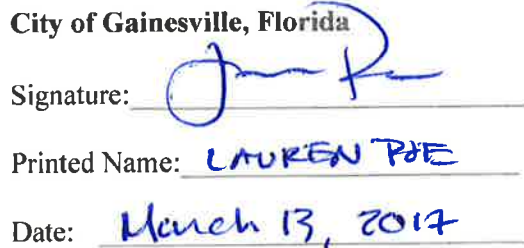 City of Gainesville, Florida
Signature:
Printed Name: LAUREN POE
Date: March 13, 2017